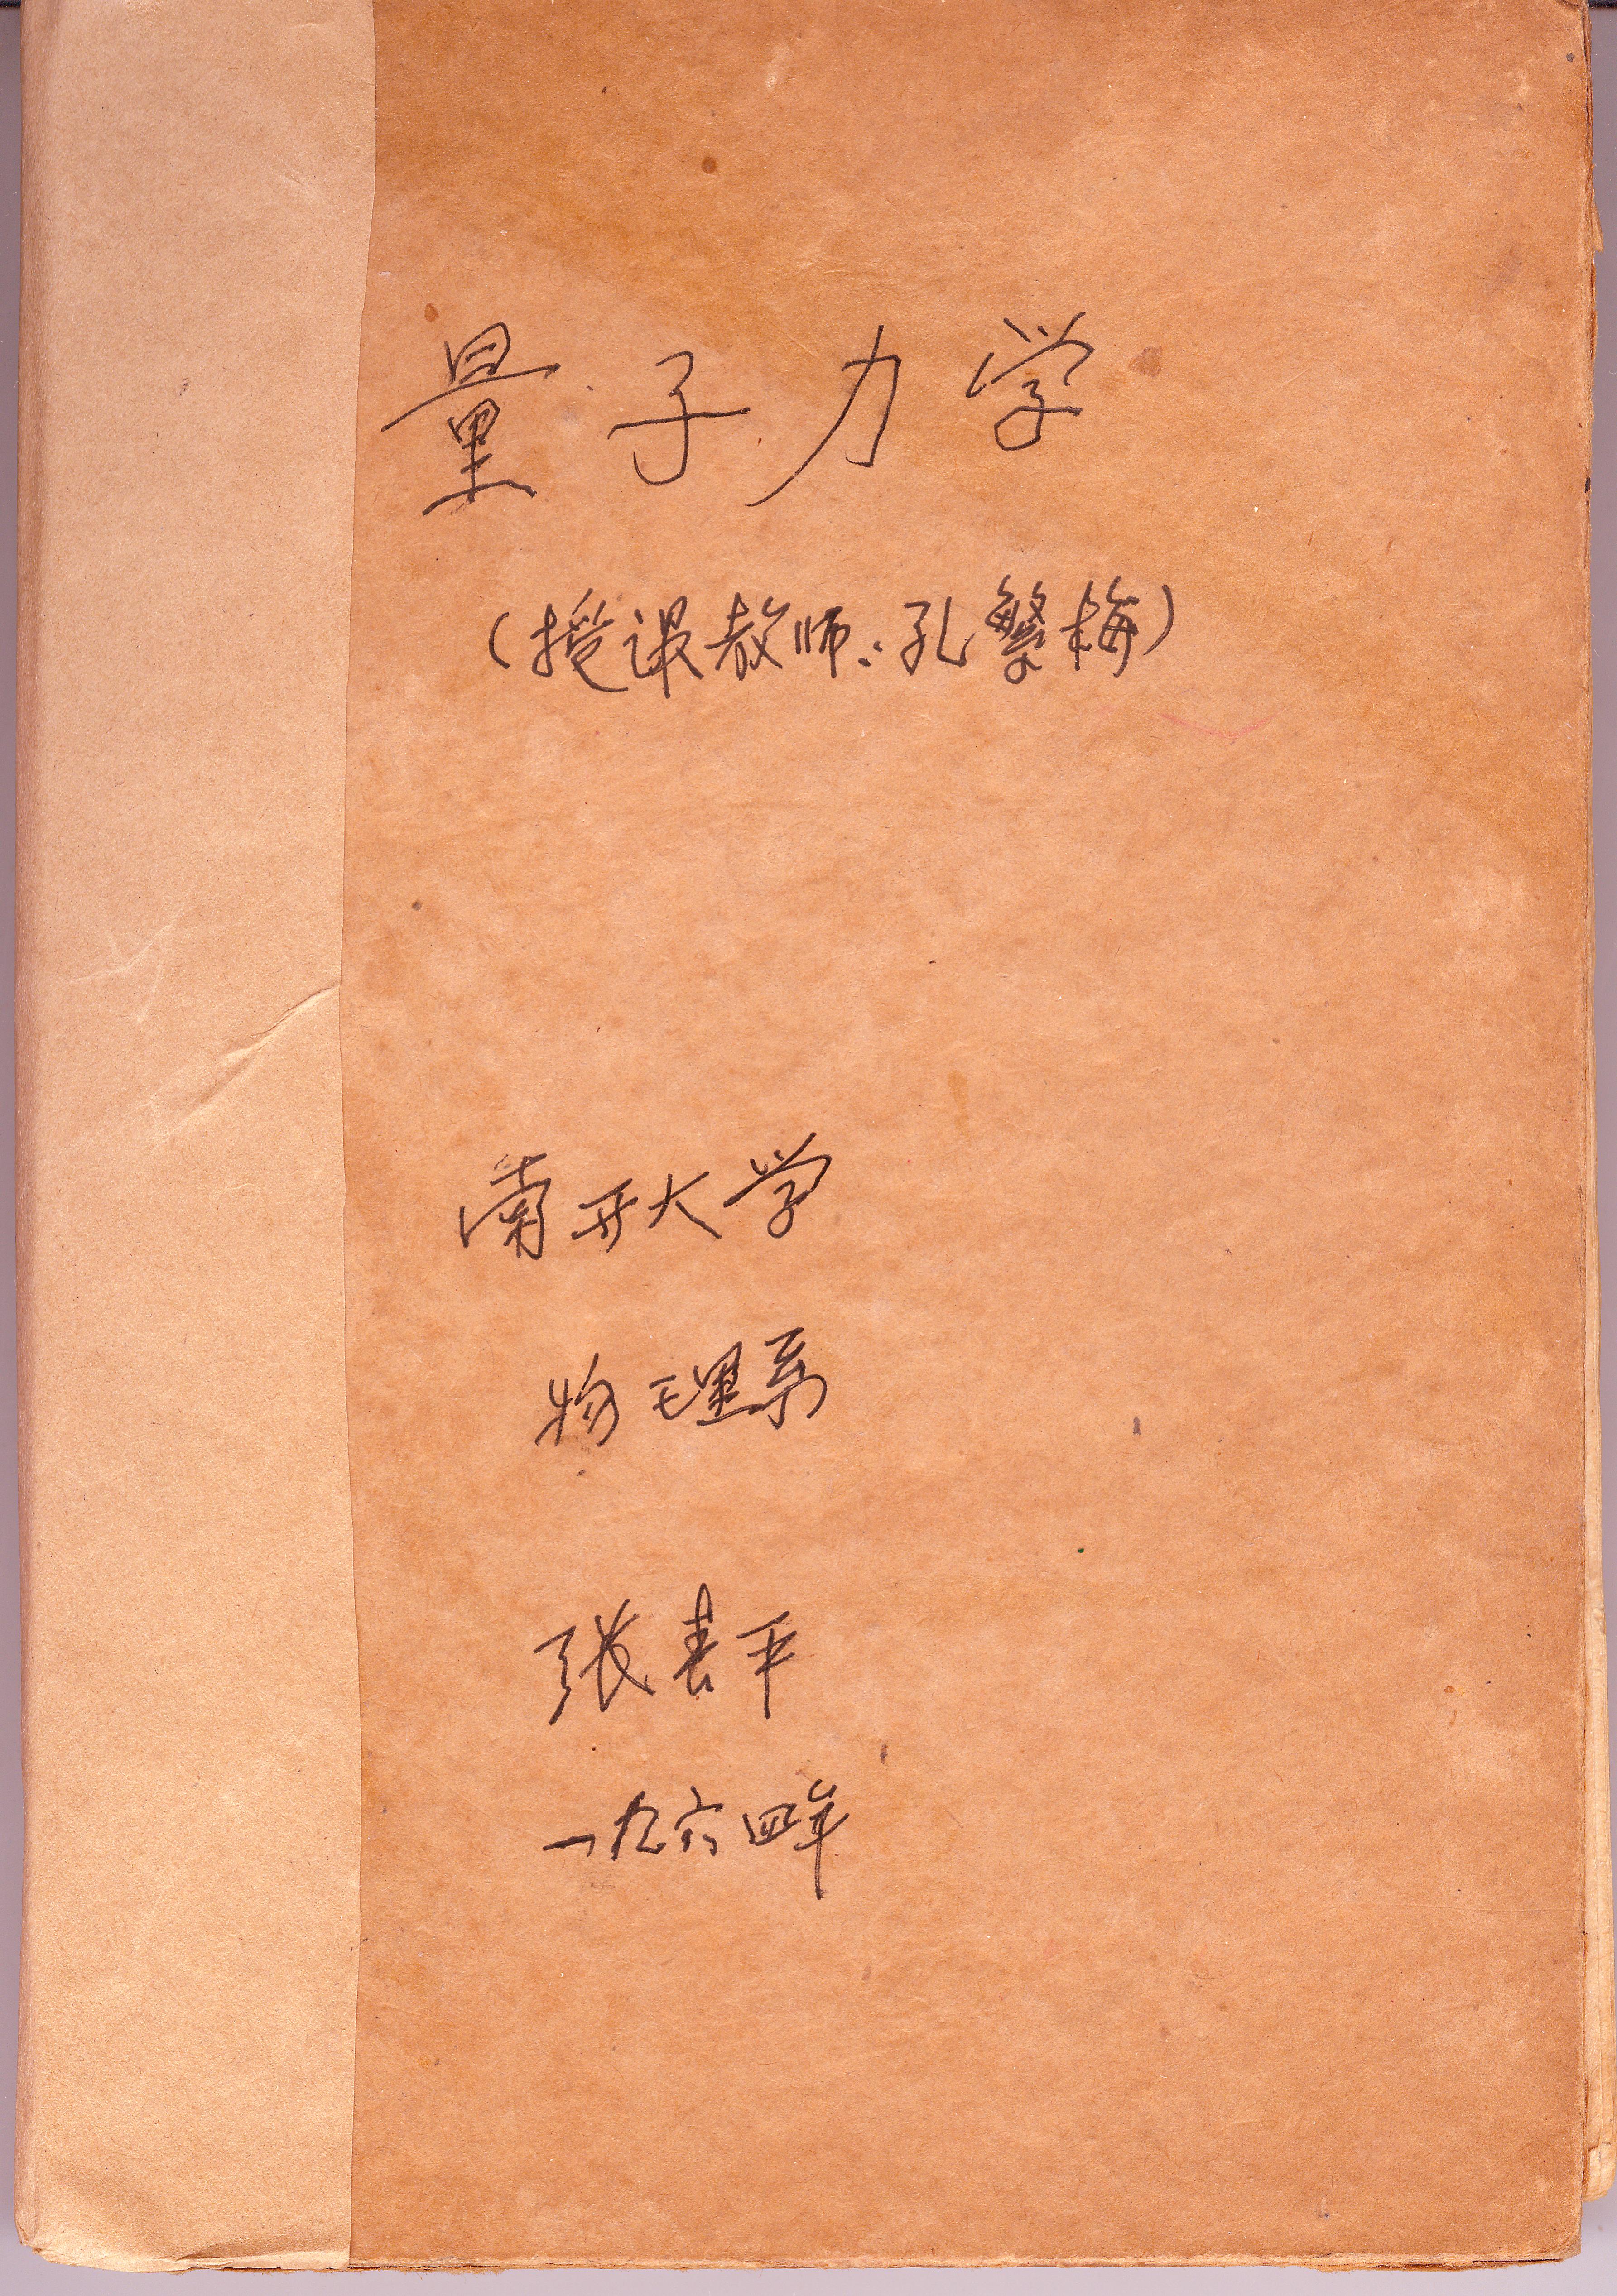 量子力学
（授课教师：孔繁梅）
南开大学
物理系
张春平
一九六四年